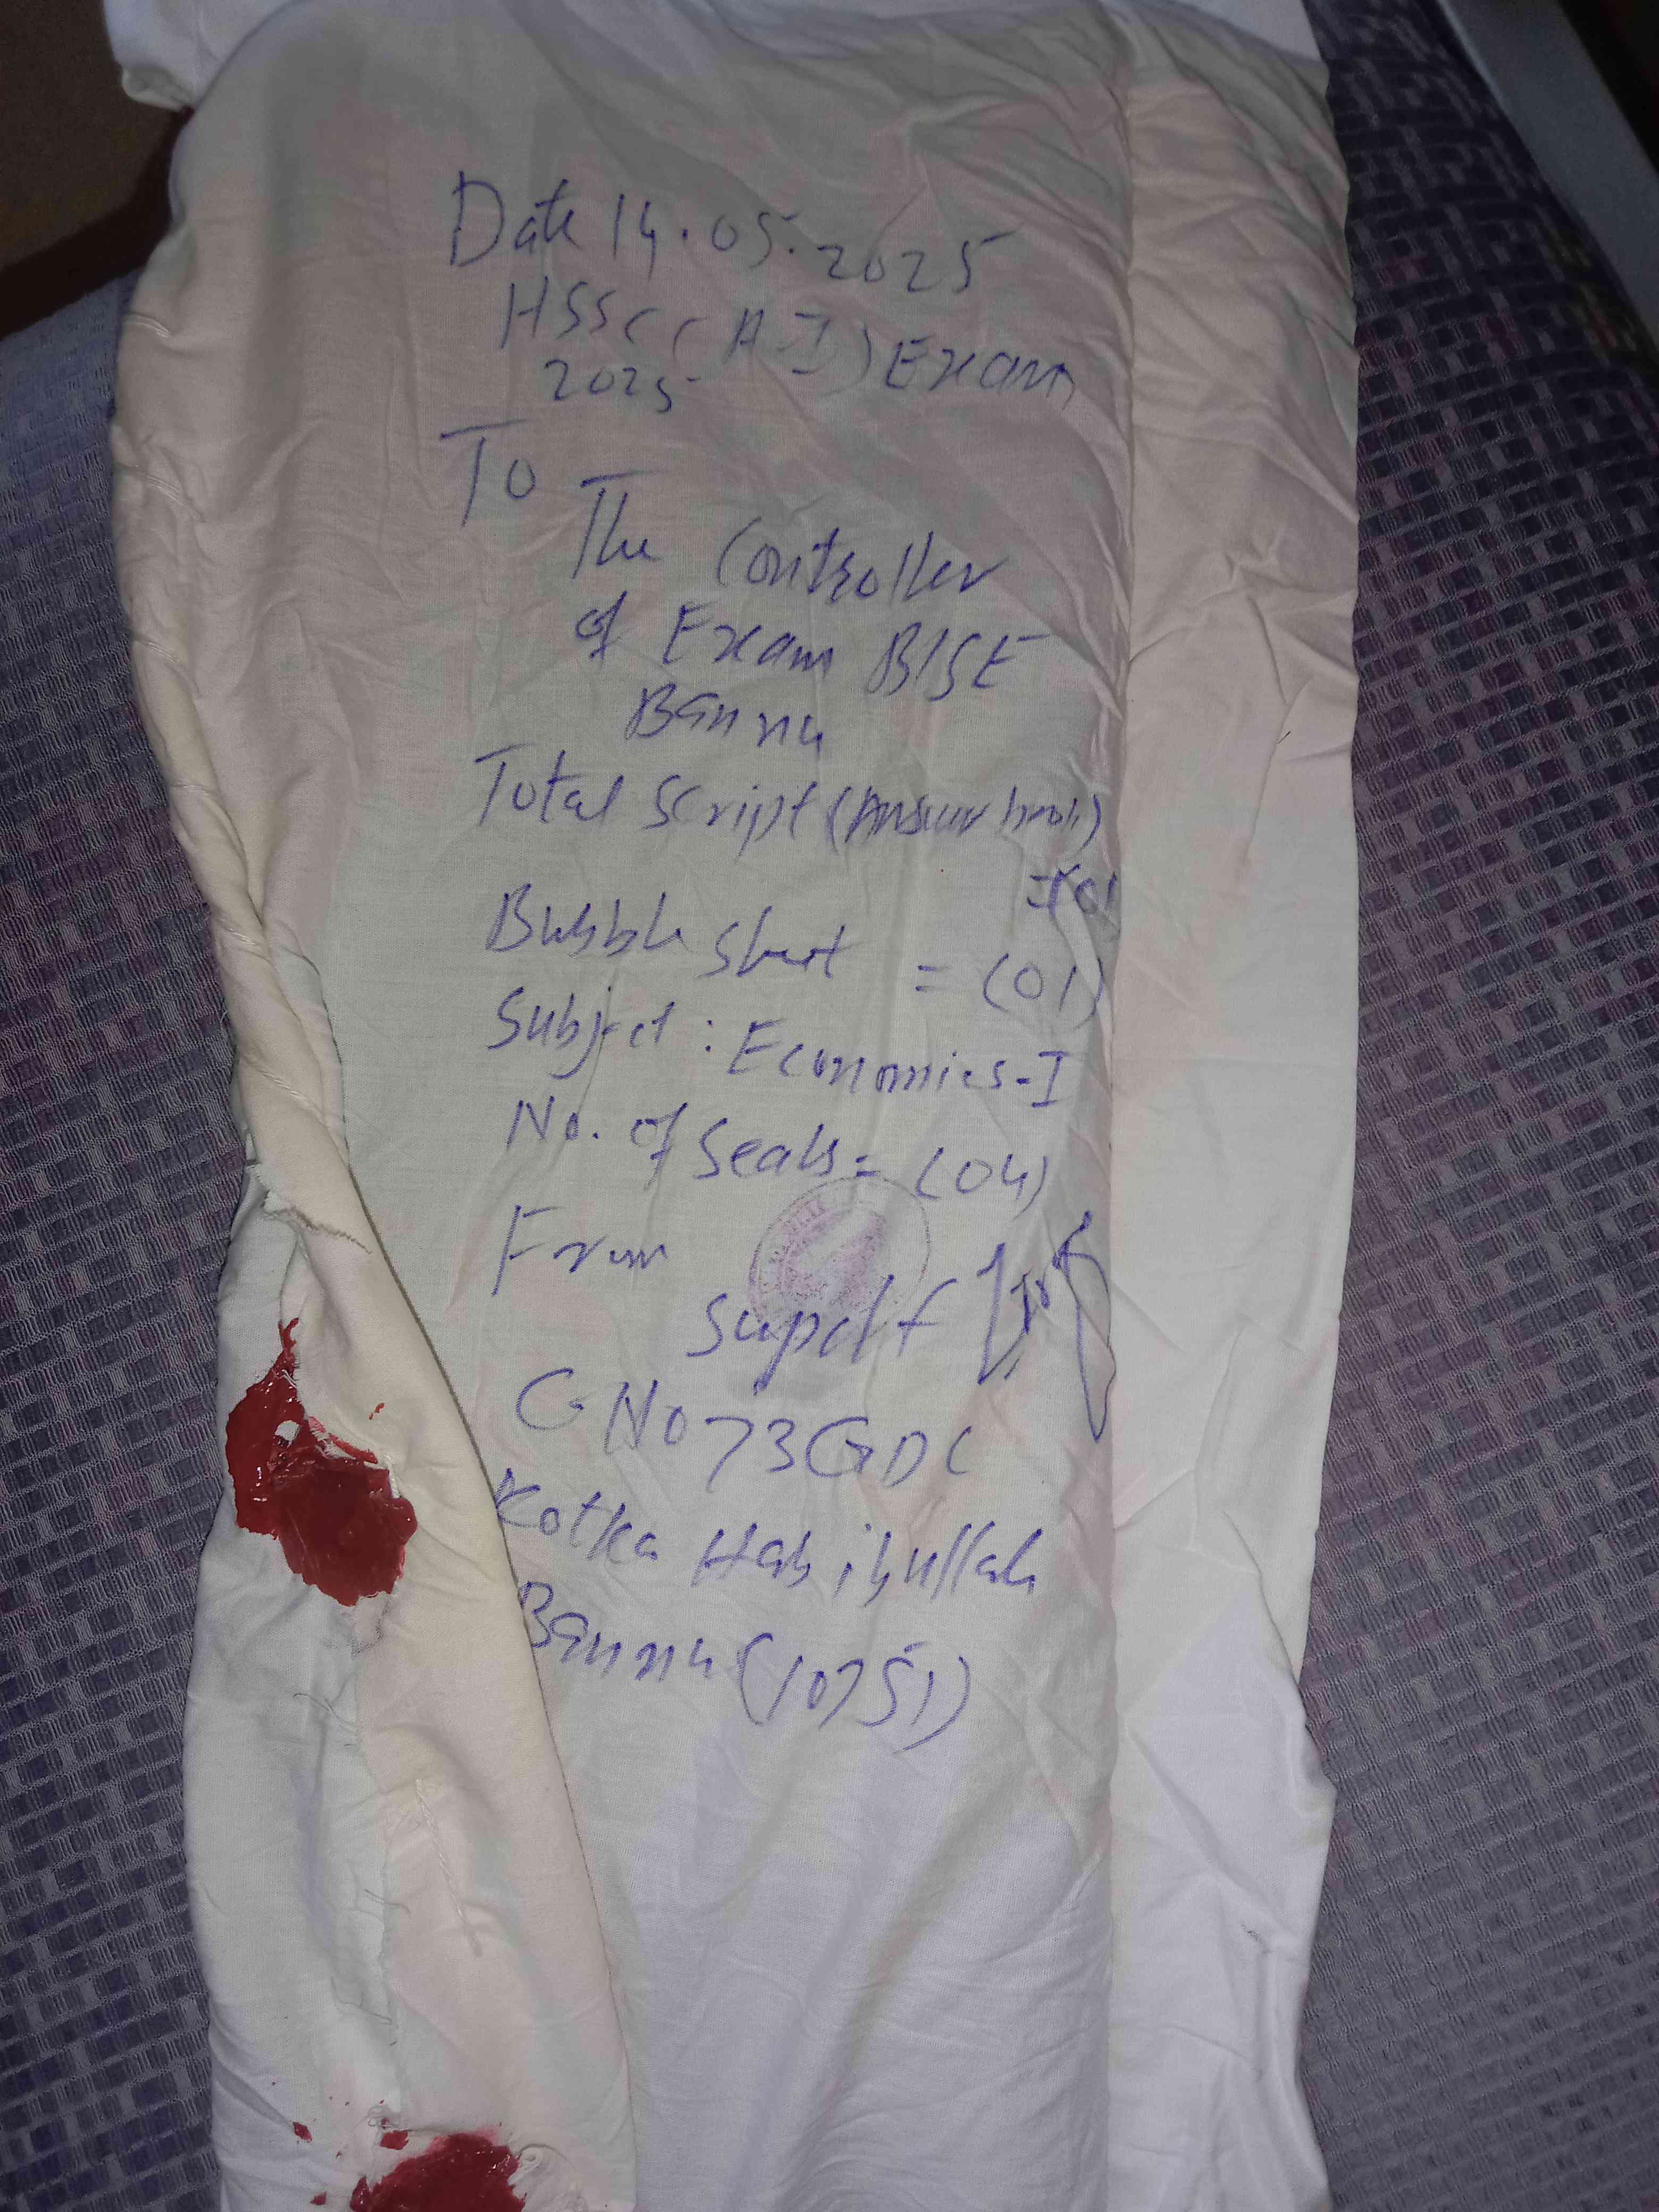 Date 14.05.2025
HSSC (A I) Exam
2025
To
The Controller
of Exam BISE
Bannu
Total Script (Answer book)
=(01
Bubble Sheet = (01)
Subject : Economics-I
No. of Seals = (04)
From
Supdt
C No 73 GDC
Kotka Habibullah
Bannu (10751)